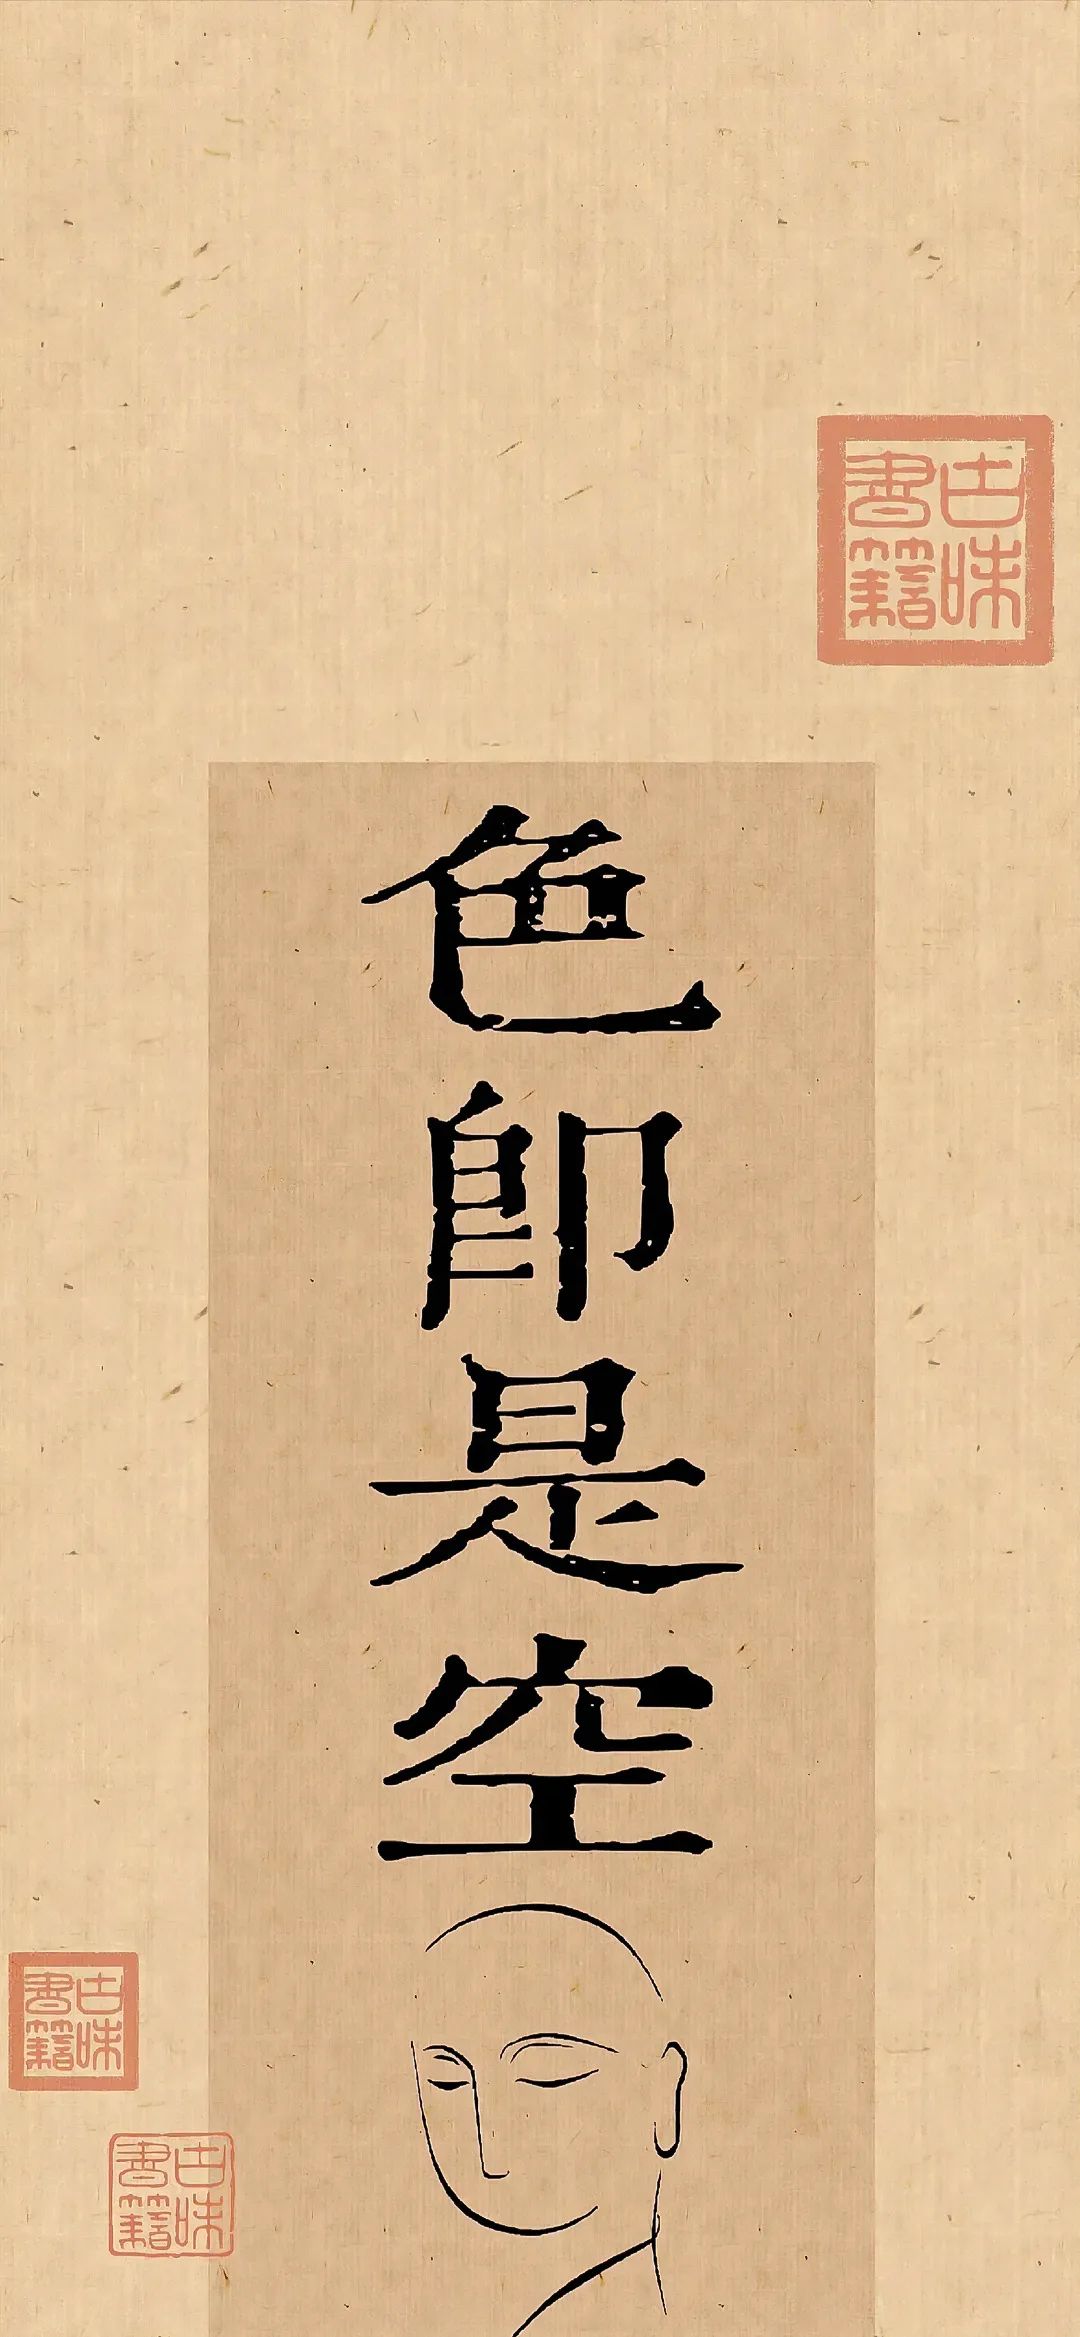 古味
書籍
色即是空
古味
書籍
古味
書籍